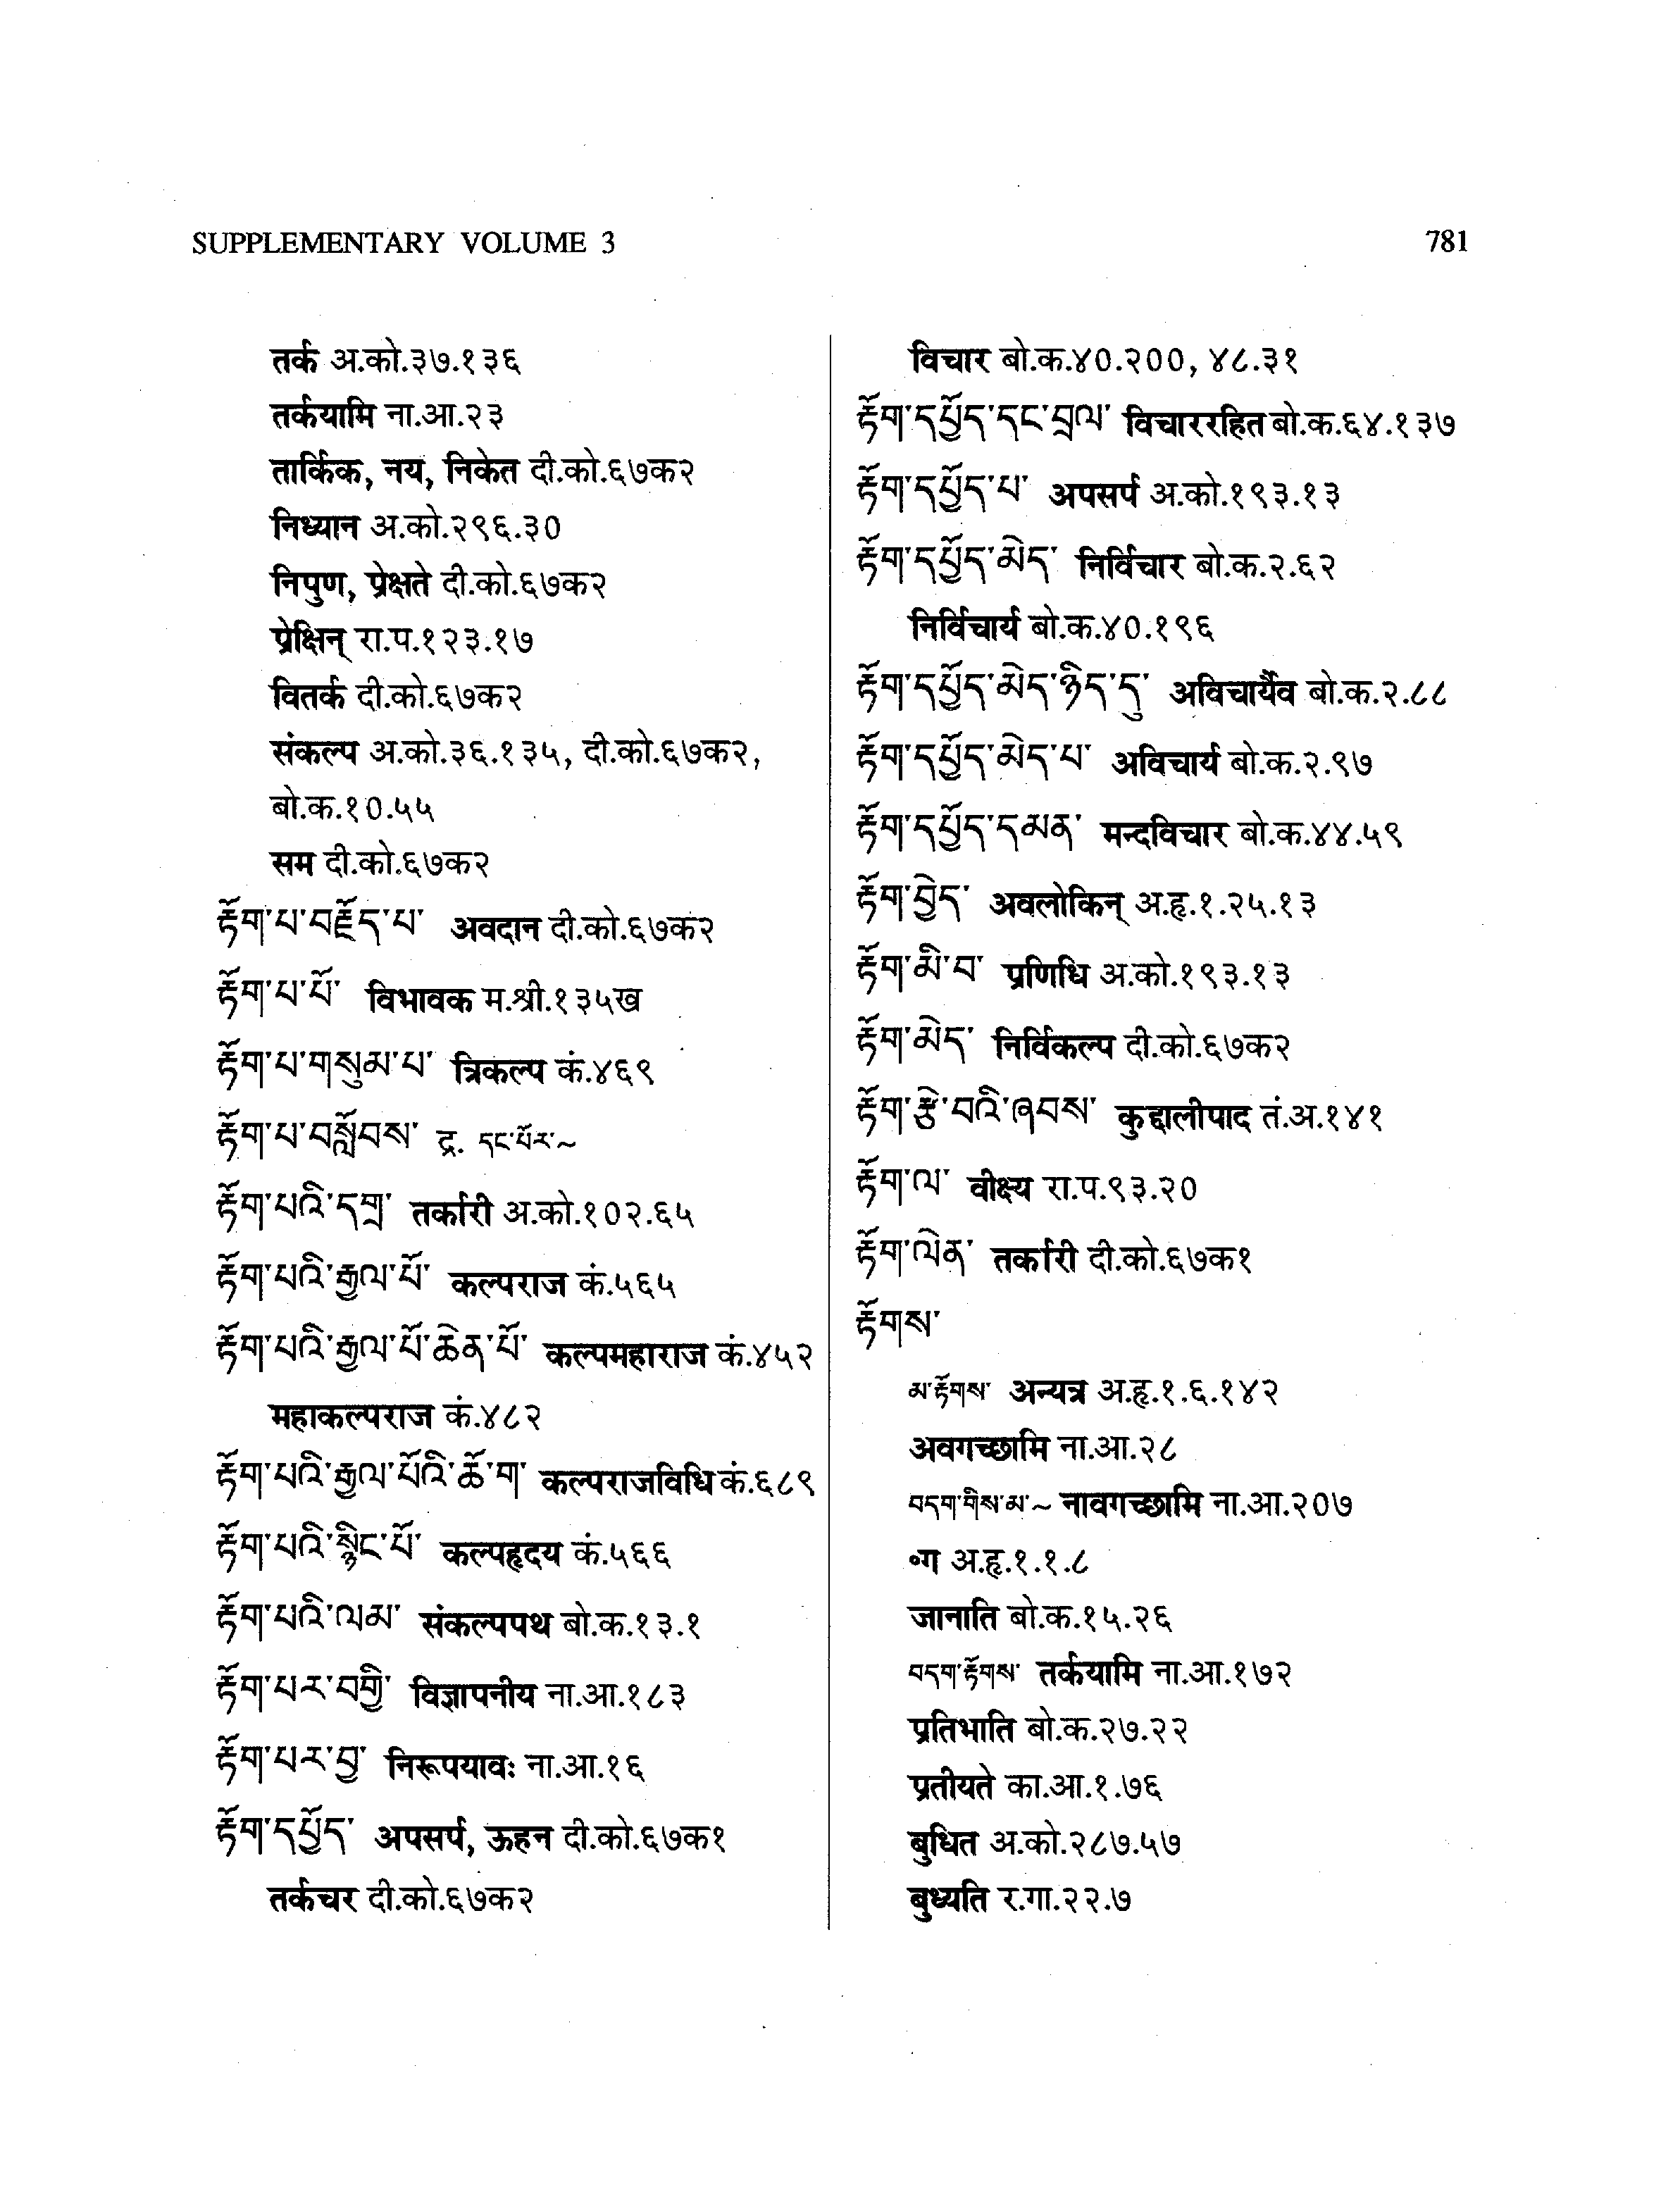 SUPPLEMENTARY VOLUME 3
781
तर्क अ.को.३७.१३६
तर्कयामि ना.आ.२३
तार्किक, नय, निकेत दी.को.६७क२
निध्यान अ.को.२९६.३०
निपुण, प्रेक्षते दी.को.६७क२
प्रेक्षिन् रा.प.१२३.१७
वितर्क दी.को.६७क२
संकल्प अ.को.३६.१३५, दी.को.६७क२,
बो.क.१०.५५
सम दी.को.६७क२
རྟོག་པ་བརྗོད་པ་ अवदान दी.को.६७क२
རྟོག་པ་པོ་ विभावक म.श्री.१३५ख
རྟོག་པ་གསུམ་པ་ त्रिकल्प कं.४६९
རྟོག་པ་བསློབས་ द्र. དང་པོར་~
རྟོག་པའི་དགྲ་ तर्कारी अ.को.१०२.६५
རྟོག་པའི་རྒྱལ་པོ་ कल्पराज कं.५६५
རྟོག་པའི་རྒྱལ་པོ་ཆེན་པོ་ कल्पमहाराज कं.४५२
महाकल्पराज कं.४८२
རྟོག་པའི་རྒྱལ་པོའི་ཆོ་ག་ कल्पराजविधि कं.६८९
རྟོག་པའི་སྙིང་པོ་ कल्पहृदय कं.५६६
རྟོག་པའི་ལམ་ संकल्पपथ बो.क.१३.१
རྟོག་པར་བགྱི་ विज्ञापनीय ना.आ.१८३
རྟོག་པར་བྱ་ निरूपयावः ना.आ.१६
རྟོག་དཔྱོད་ अपसर्प, ऊहन दी.को.६७क१
तर्कचर दी.को.६७क२
विचार बो.क.४०.२००, ४८.३१
རྟོག་དཔྱོད་དང་བྲལ་ विचाररहित बो.क.६४.१३७
རྟོག་དཔྱོད་པ་ अपसर्प अ.को.१९३.१३
རྟོག་དཔྱོད་མེད་ निर्विचार बो.क.२.६२
निर्विचार्य बो.क.४०.१९६
རྟོག་དཔྱོད་མེད་ཉིད་དུ་ अविचार्यैव बो.क.२.८८
རྟོག་དཔྱོད་མེད་པ་ अविचार्य बो.क.२.९७
རྟོག་དཔྱོད་དམན་ मन्दविचार बो.क.४४.५९
རྟོག་བྱེད་ अवलोकिन् अ.हृ.१.२५.१३
རྟོག་མི་བ་ प्रणिधि अ.को.१९३.१३
རྟོག་མེད་ निर्विकल्प दी.को.६७क२
རྟོག་རྩེ་བའི་ཞབས་ कुद्दालीपाद तं.अ.१४१
རྟོག་ལ་ वीक्ष्य रा.प.९३.२०
རྟོག་ལེན་ तर्कारी दी.को.६७क१
རྟོགས་
མ་རྟོགས་ अन्यत्र अ.हृ.१.६.१४२
अवगच्छामि ना.आ.२८
བདག་གིས་མ་~ नावगच्छामि ना.आ.२०७
॰ग अ.हृ.१.१.८
जानाति बो.क.१५.२६
བདག་རྟོགས་ तर्कयामि ना.आ.१७२
प्रतिभाति बो.क.२७.२२
प्रतीयते का.आ.१.७६
बुधित अ.को.२८७.५७
बुध्यति र.गा.२२.७